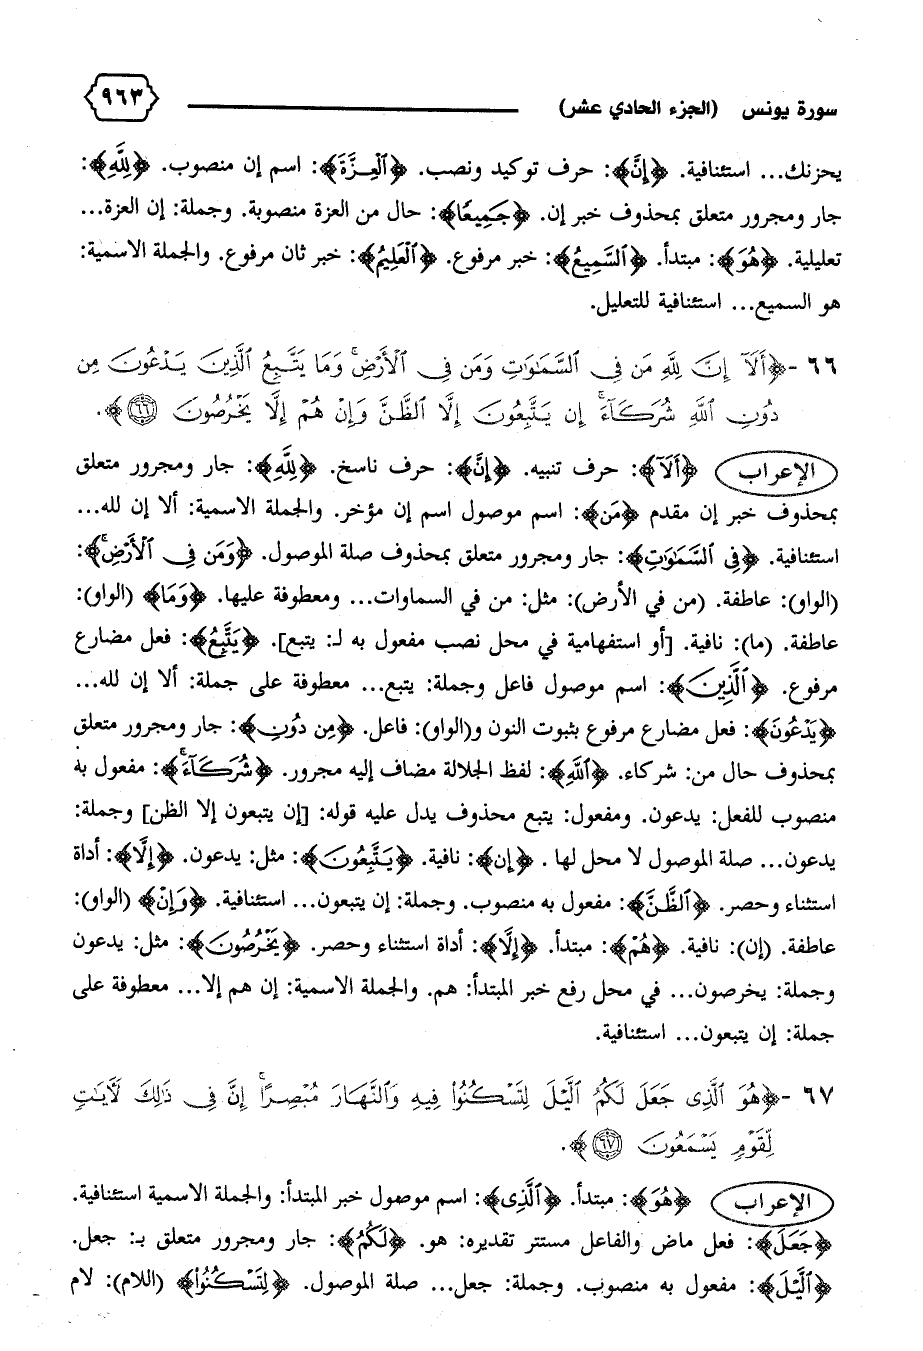 سورة يونس (الجزء الحادي عشر) ٩٦٣
يحزنك... استئنافية. ﴿إِنَّ﴾: حرف توكيد ونصب. ﴿ٱلْعِزَّةَ﴾: اسم إن منصوب. ﴿لِلَّهِ﴾:
جار ومجرور متعلق بمحذوف خبر إن. ﴿جَمِيعًا﴾: حال من العزة منصوبة. وجملة: إن العزة...
تعليلية. ﴿هُوَ﴾: مبتدأ. ﴿ٱلسَّمِيعُ﴾: خبر مرفوع. ﴿ٱلْعَلِيمُ﴾: خبر ثان مرفوع. والجملة الاسمية:
هو السميع... استئنافية للتعليل.
٦٦ - ﴿أَلَآ إِنَّ لِلَّهِ مَن فِى ٱلسَّمَٰوَٰتِ وَمَن فِى ٱلْأَرْضِ ۗ وَمَا يَتَّبِعُ ٱلَّذِينَ يَدْعُونَ مِن
دُونِ ٱللَّهِ شُرَكَآءَ ۚ إِن يَتَّبِعُونَ إِلَّا ٱلظَّنَّ وَإِنْ هُمْ إِلَّا يَخْرُصُونَ ٦٦﴾.
الإعراب ﴿أَلَآ﴾: حرف تنبيه. ﴿إِنَّ﴾: حرف ناسخ. ﴿لِلَّهِ﴾: جار ومجرور متعلق
بمحذوف خبر إن مقدم ﴿مَن﴾: اسم موصول اسم إن مؤخر. والجملة الاسمية: ألا إن لله...
استئنافية. ﴿فِى ٱلسَّمَٰوَٰتِ﴾: جار ومجرور متعلق بمحذوف صلة الموصول. ﴿وَمَن فِى ٱلْأَرْضِ ۗ﴾:
(الواو): عاطفة. (من في الأرض): مثل: من في السماوات... ومعطوفة عليها. ﴿وَمَا﴾ (الواو):
عاطفة. (ما): نافية. [أو استفهامية في محل نصب مفعول به لـ: يتبع]. ﴿يَتَّبِعُ﴾: فعل مضارع
مرفوع. ﴿ٱلَّذِينَ﴾: اسم موصول فاعل وجملة: يتبع... معطوفة على جملة: ألا إن لله...
﴿يَدْعُونَ﴾: فعل مضارع مرفوع بثبوت النون و(الواو): فاعل. ﴿مِن دُونِ﴾: جار ومجرور متعلق
بمحذوف حال من: شركاء. ﴿ٱللَّهِ﴾: لفظ الجلالة مضاف إليه مجرور. ﴿شُرَكَآءَ ۚ﴾: مفعول به
منصوب للفعل: يدعون. ومفعول: يتبع محذوف يدل عليه قوله: [إن يتبعون إلا الظن] وجملة:
يدعون... صلة الموصول لا محل لها . ﴿إِن﴾: نافية. ﴿يَتَّبِعُونَ﴾: مثل: يدعون. ﴿إِلَّا﴾: أداة
استثناء وحصر. ﴿ٱلظَّنَّ﴾: مفعول به منصوب. وجملة: إن يتبعون... استئنافية. ﴿وَإِنْ﴾ (الواو):
عاطفة. (إن): نافية. ﴿هُمْ﴾: مبتدأ. ﴿إِلَّا﴾: أداة استثناء وحصر. ﴿يَخْرُصُونَ﴾: مثل: يدعون
وجملة: يخرصون... في محل رفع خبر المبتدأ: هم. والجملة الاسمية: إن هم إلا... معطوفة على
جملة: إن يتبعون... استئنافية.
٦٧ - ﴿هُوَ ٱلَّذِى جَعَلَ لَكُمُ ٱلَّيْلَ لِتَسْكُنُوا۟ فِيهِ وَٱلنَّهَارَ مُبْصِرًا ۚ إِنَّ فِى ذَٰلِكَ لَءَايَٰتٍ
لِّقَوْمٍ يَسْمَعُونَ ٦٧﴾.
الإعراب ﴿هُوَ﴾: مبتدأ. ﴿ٱلَّذِى﴾: اسم موصول خبر المبتدأ: والجملة الاسمية استئنافية.
﴿جَعَلَ﴾: فعل ماض والفاعل مستتر تقديره: هو. ﴿لَكُمُ﴾: جار ومجرور متعلق بـ: جعل.
﴿ٱلَّيْلَ﴾: مفعول به منصوب. وجملة: جعل... صلة الموصول. ﴿لِتَسْكُنُوا۟﴾ (اللام): لام